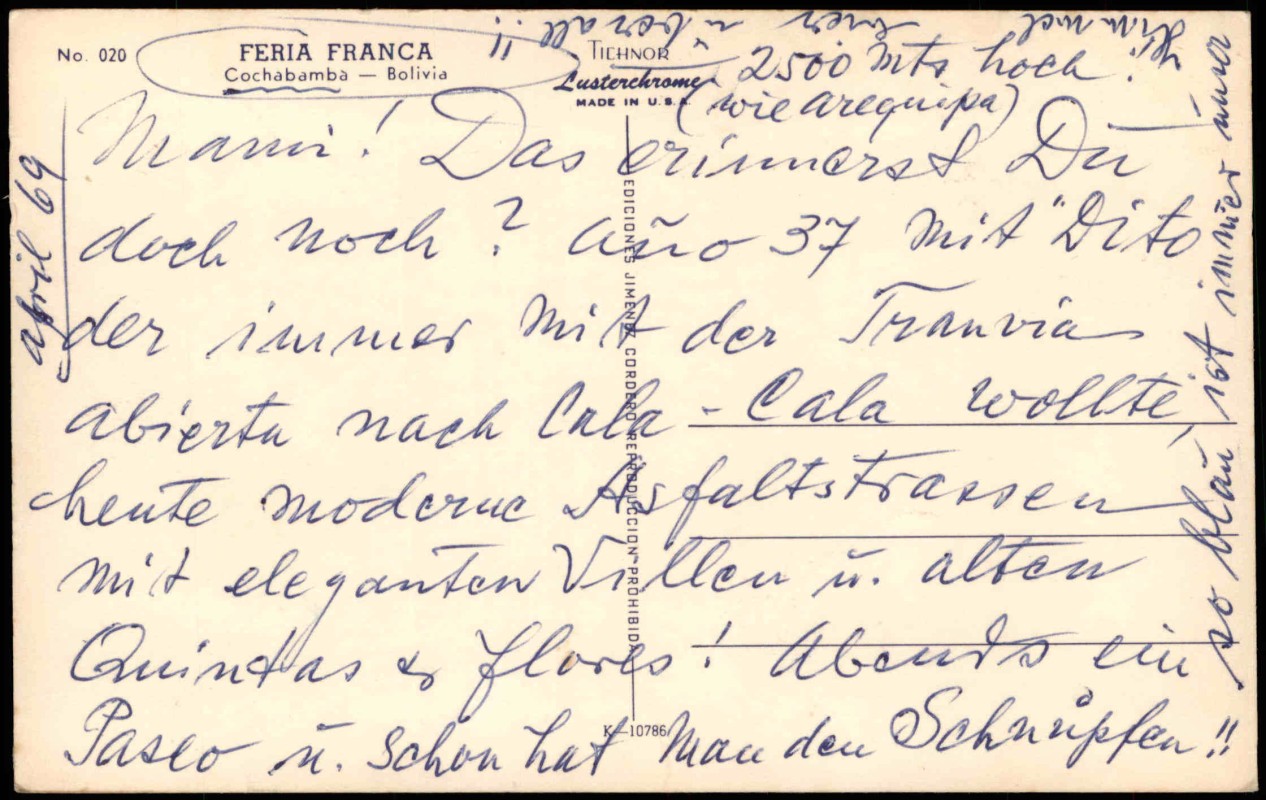 No. 020
FERIA FRANCA
Cochabamba — Bolivia
TICHNOR
Lusterchrome
MADE IN U.S.A.
2500 Mts hoch!
(wie Arequipa)
April 69
Mami! Das erinnerst Du
doch noch? Año 37 mit "Dito
der immer mit der Tranvia
abierta nach Cala-Cala wollte,
heute moderne Asfaltstrassen
mit eleganten Villen u. alten
Quintas & flores! Abends ein
Paseo u. schon hat man den Schnupfen!!
so blau ist immer
Himmel hier überall!!
EDICIONES JIMENEZ CORDERO REPRODUCCION PROHIBIDA
K—10786